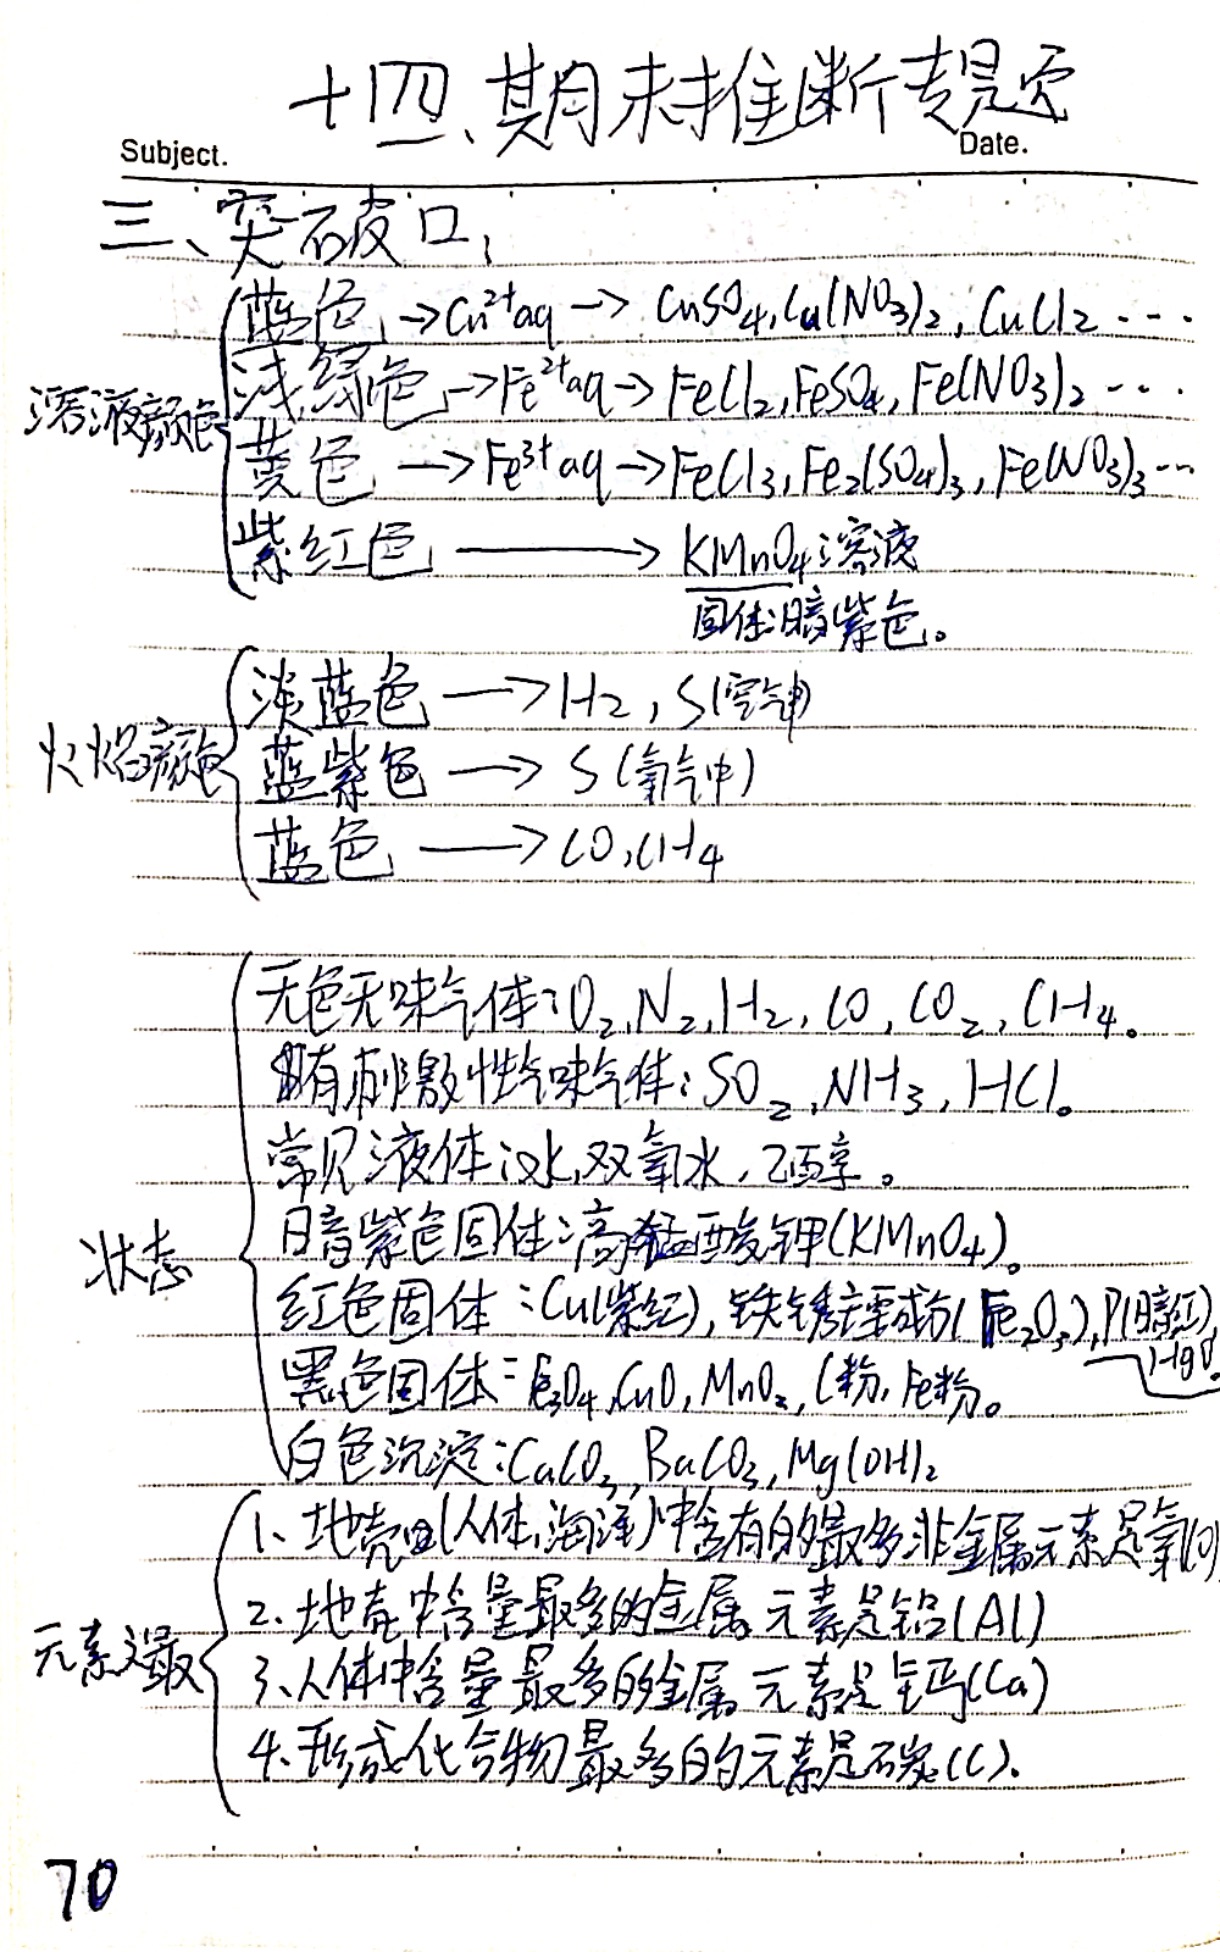 十四、期末推断专题
Subject.
Date.
三、突破口:
溶液颜色
蓝色 → Cu²⁺aq → CuSO₄, Cu(NO₃)₂, CuCl₂ ····
浅绿色 → Fe²⁺aq → FeCl₂, FeSO₄, Fe(NO₃)₂ ····
黄色 → Fe³⁺aq → FeCl₃, Fe₂(SO₄)₃, Fe(NO₃)₃ ···
紫红色 → KMnO₄溶液
固体:暗紫色。
火焰颜色
淡蓝色 → H₂, S(空气中)
蓝紫色 → S(氧气中)
蓝色 → CO, CH₄
状态
无色无味气体:O₂, N₂, H₂, CO, CO₂, CH₄。
有刺激性气味气体:SO₂, NH₃, HCl。
常见液体:水, 双氧水, 乙醇。
暗紫色固体:高锰酸钾(KMnO₄)。
红色固体:Cu(紫红), 铁锈主要成分(Fe₂O₃), P(暗红)
HgO。
黑色固体:Fe₃O₄, CuO, MnO₂, C粉, Fe粉。
白色沉淀:CaCO₃, BaCO₃, Mg(OH)₂
元素之最
1、地壳(人体,海洋)中含有的最多非金属元素是氧(O)
2. 地壳中含量最多的金属元素是铝(Al)
3、人体中含量最多的金属元素是钙(Ca)
4、形成化合物最多的元素是碳(C).
70